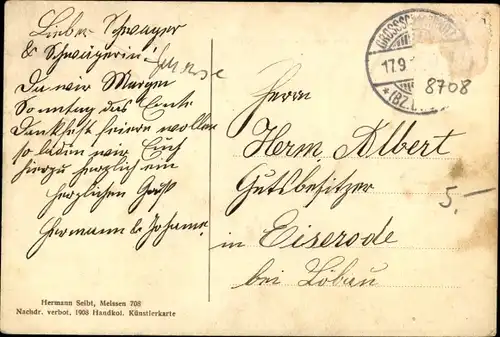 Lieber Schwager
& Schwägerin!
Da wir Morgen
Sonntag das Ernte
dankfest feiern wollen
so laden wir Euch
hierzu herzlich ein
Herzlichen Gruß
Hermann & Johanne.
Hermann Seibt, Meissen 708
Nachdr. verbot. 1908 Handkol. Künstlerkarte
17.9.
*(BZ.
8708
Herrn
Herm. Albert
Gutsbesitzer
in Eiserode
bei Löbau
5.–